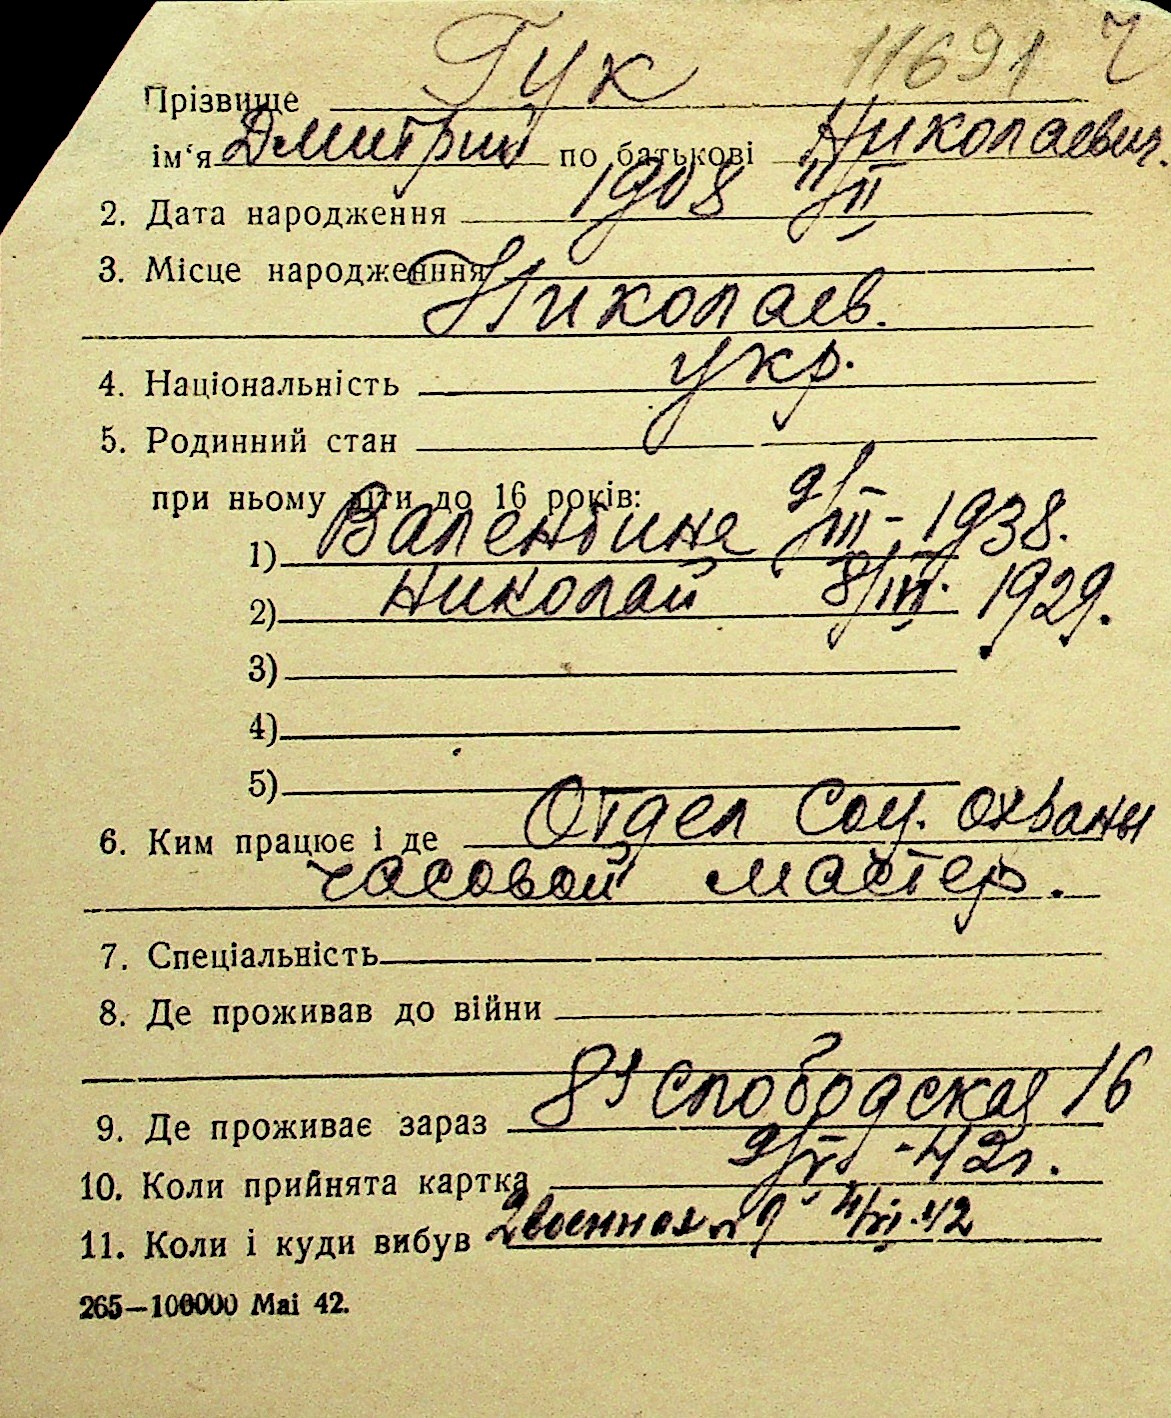 11691 Ч
Прізвище Гук
ім‘я Дмитрий по батькові Николаевич.
2. Дата народження 1908 11/II
3. Місце народженння
Николаев.
4. Національність укр.
5. Родинний стан
при ньому діти до 16 років:
1) Валентина 9/III - 1938.
2) Николай 1929.
3)
4)
5)
6. Ким працює і де Отдел Соц. охраны
часовой мастер.
7. Спеціальність
8. Де проживав до війни
9. Де проживає зараз 8я Слободская 16
10. Коли прийнята картка 9/VI - 42г.
11. Коли і куди вибув 2 военная 42
265—100000 Mai 42.